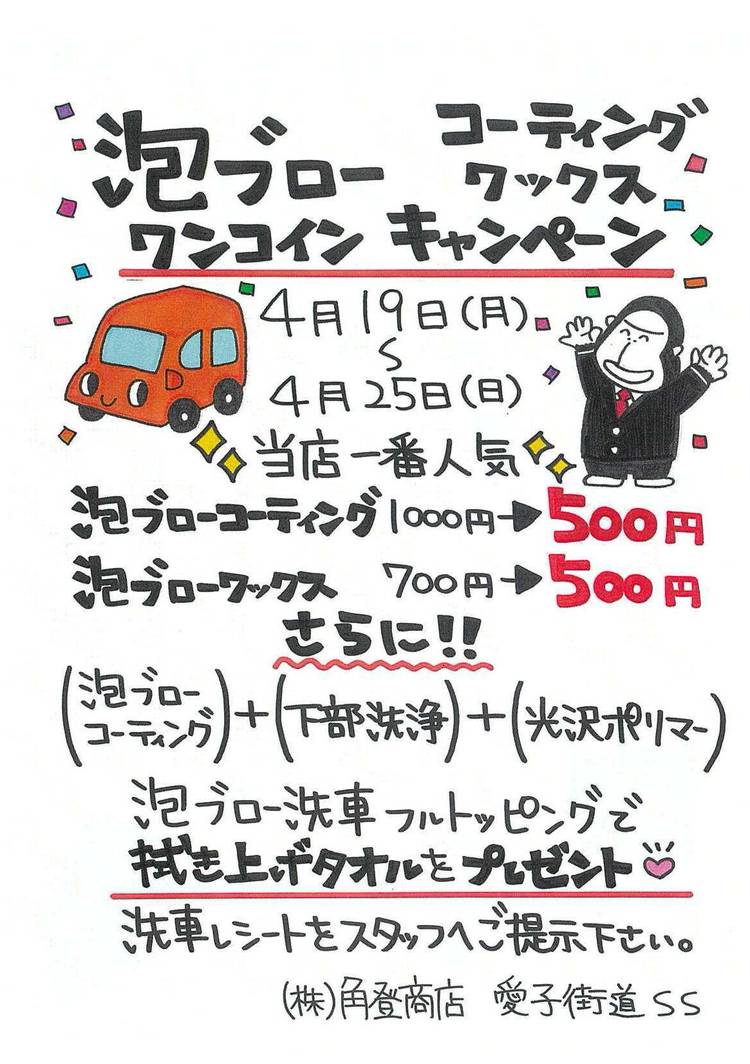 泡ブロー コーティング ワックス
ワンコイン キャンペーン
4月19日(月)
〜
4月25日(日)
当店一番人気
泡ブローコーティング 1000円→500円
泡ブローワックス 700円→500円
さらに!!
(泡ブローコーティング)+(下部洗浄)+(光沢ポリマー)
泡ブロー洗車フルトッピングで
拭き上げタオルをプレゼント
洗車レシートをスタッフへご提示下さい。
(株)角登商店 愛子街道SS